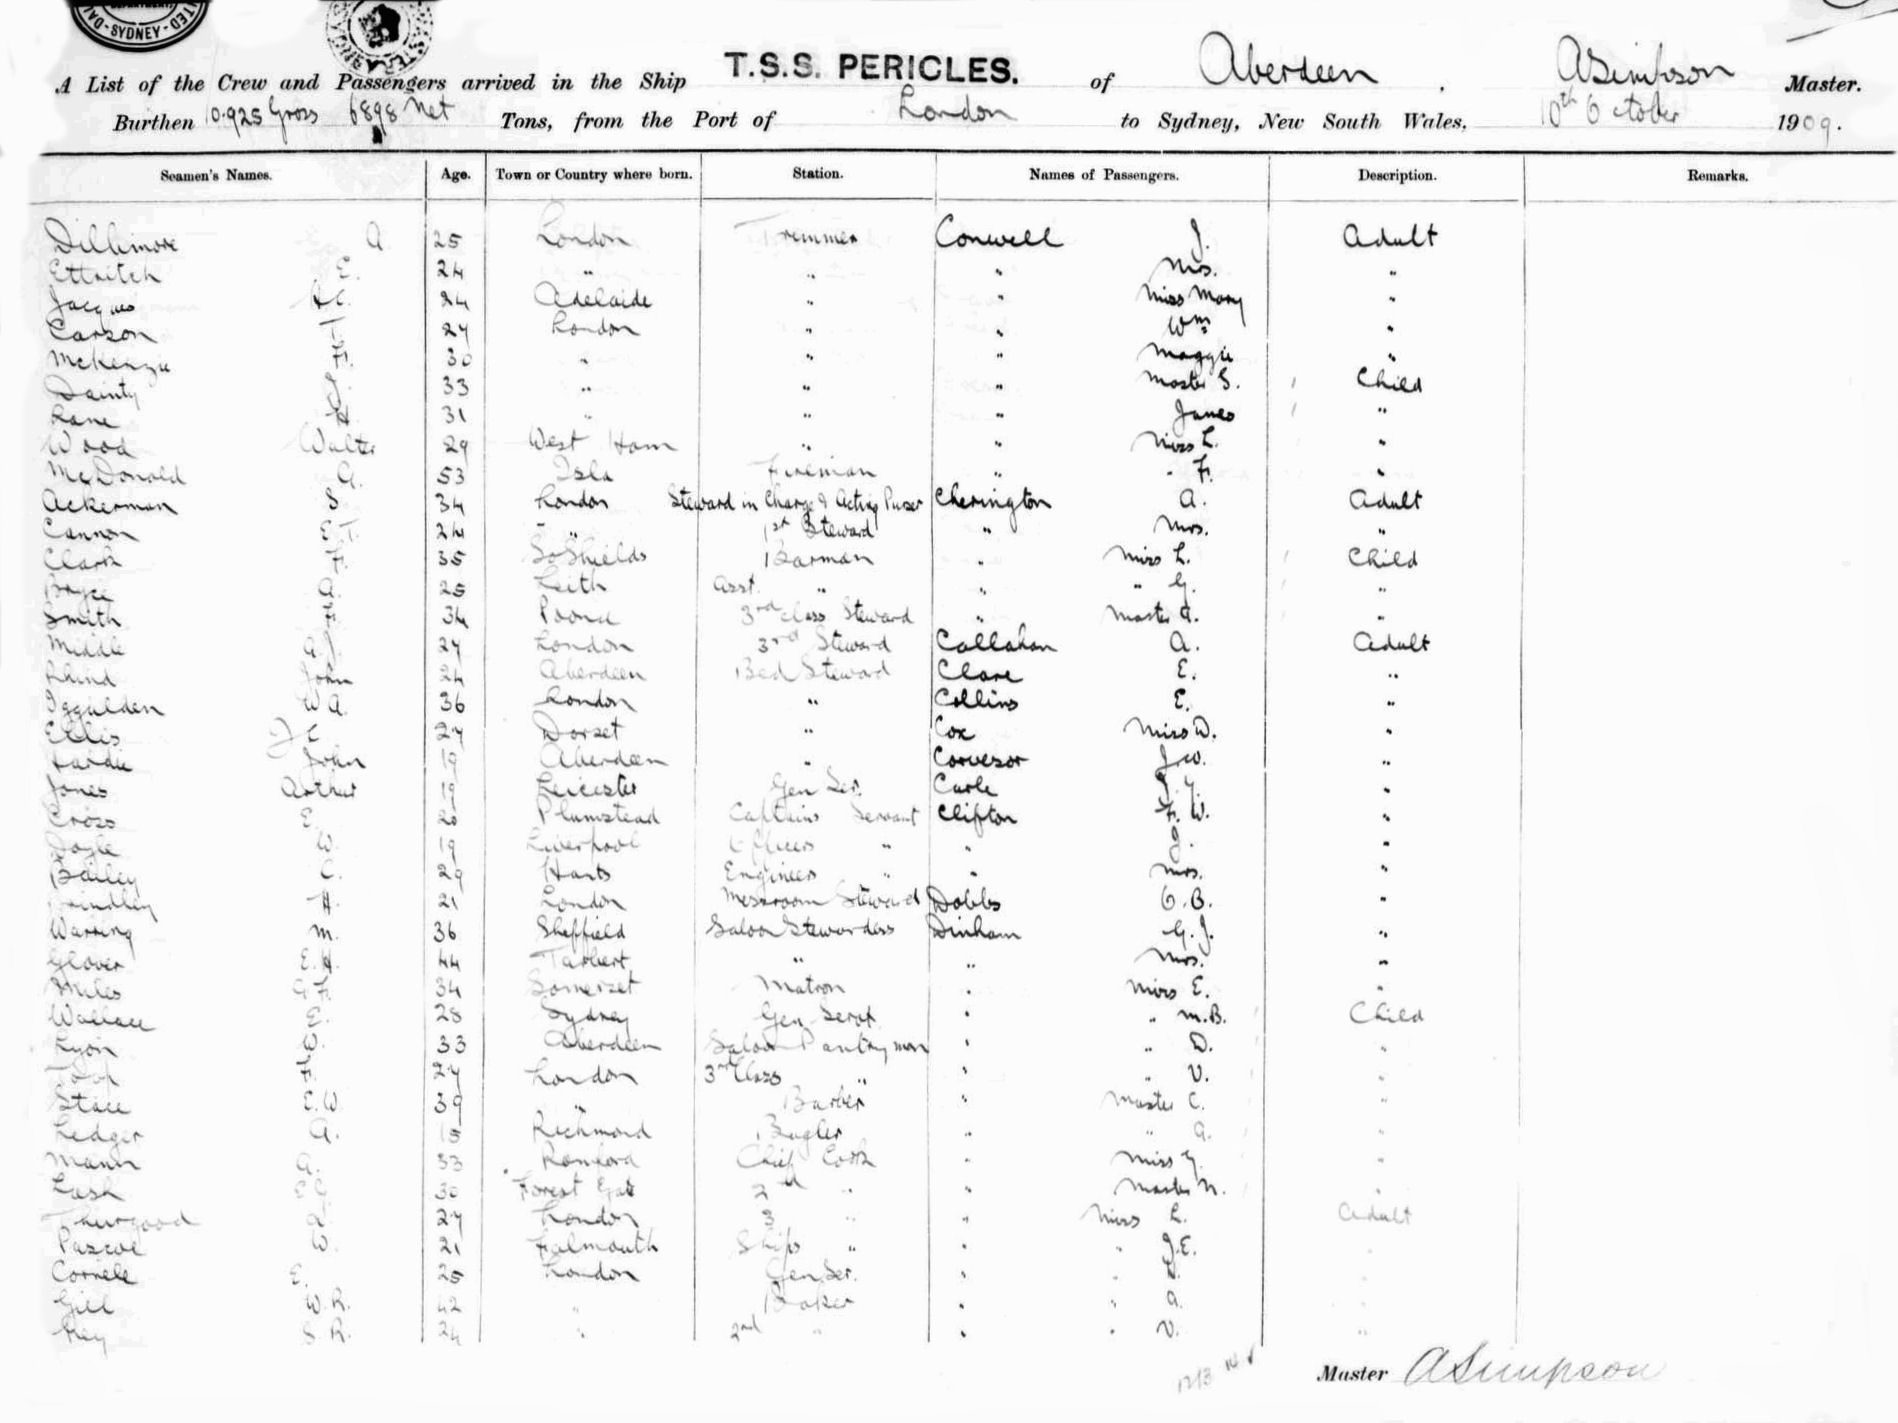 SYDNEY
A List of the Crew and Passengers arrived in the Ship T.S.S. PERICLES. of Aberdeen, ASimpson Master.
Burthen 10.925 Gross 6898 Net Tons, from the Port of London to Sydney, New South Wales. 10th October 1909.
Seamen's Names. Age. Town or Country where born. Station. Names of Passengers. Description. Remarks.
Dillimore A 25 London Trimmer Conwell J. Adult
Ettritch E. 24 " " " Mrs. "
Jacques 24 Adelaide " " Miss Mary "
Carson T. 27 London " " Wm "
McKenzie F. 30 " " " Maggie "
Dainty J. 33 " " " Master S. Child
Lane H. 31 " " " James "
Wood Walter 29 West Ham " " Miss L. "
McDonald A. 53 Isla Fireman " " F. "
Ackerman S. 34 London Steward in Charge & Acting Purser Cherington A. Adult
Cannon E.T. 24 " 1st Steward " Mrs. "
Clark F. 35 So Shields Barman " Miss L. Child
Bryce A. 25 Leith Asst. " " " G. "
Smith F. 34 Poona 3rd Class Steward " Master "
Middle A.J. 27 London 3rd Steward Callahan A. Adult
Rhind John 24 Aberdeen Bed Steward Clare E. "
Iggulden W A. 36 London " Collins E. "
Ellis 27 Dorset " Cox Miss D. "
Hardie John 19 Aberdeen " Corvesor J.W. "
Jones Arthur 19 Leicester Gen Ser. Carle "
Cross E. 20 Plumstead Captains Servant Clifton F. W. "
Doyle W. 19 Liverpool Officers " " J. "
Bailey C. 29 Hants Engineers " " Mrs. "
Brindley H. 21 London Messroom Steward Dobbs O. B. "
Warring M. 36 Sheffield Saloon Stewardess Dinham G. J. "
Glover E. H. 44 Tarbert " " Mrs. "
Miles G F. 34 Somerset Matron " Miss E. "
Wallace E. 28 Sydney Gen Servt " " M.B. Child
Lyon W. 33 Aberdeen Saloon Pantryman " " D. "
F. 27 London 3rd Class " " " V. "
Stace E.W. 39 " Barber " Master C. "
Ledger A. 15 Richmond Bugler " " A. "
Mann A. 33 Romford Chief Cook " Miss G. "
Lash 30 Forest Gate 2nd " " Master N. "
Thurgood 27 London 3 " " Miss L. Adult
Pascoe W. 21 Falmouth Ships " " " J.E. "
Cornele E. 25 London Gen Ser. "
Gill W.R. 42 " Baker " " A. "
Key S R. 24 " 2nd " " " V. "
Master ASimpson